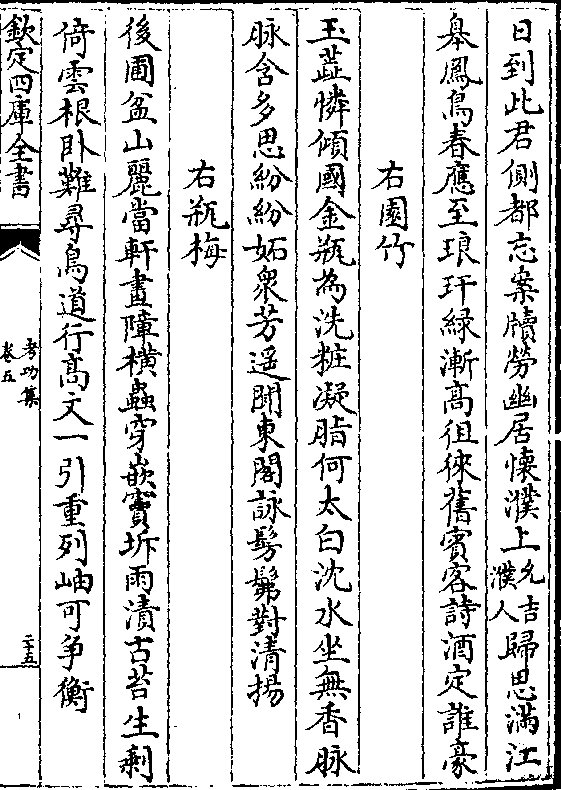 日到此君側都忘案牘勞幽居懷濮上允吉濮人歸思滿江
臯鳳鳥春應至琅玕緑漸髙徂徠舊賓客詩酒定誰豪
右園竹
玉蘂憐傾國金瓶為洗粧凝脂何太白沈水坐無香脉
脉含多思紛紛妬衆芳遥聞東閣詠髣髴對清揚
右瓶梅
後圃盆山麗當軒畫障横蟲穿嵌竇坼雨漬古苔生剩
倚雲根卧難尋鳥道行髙文一引重列岫可争衡
欽定四庫全書
考功集
卷五
二十五